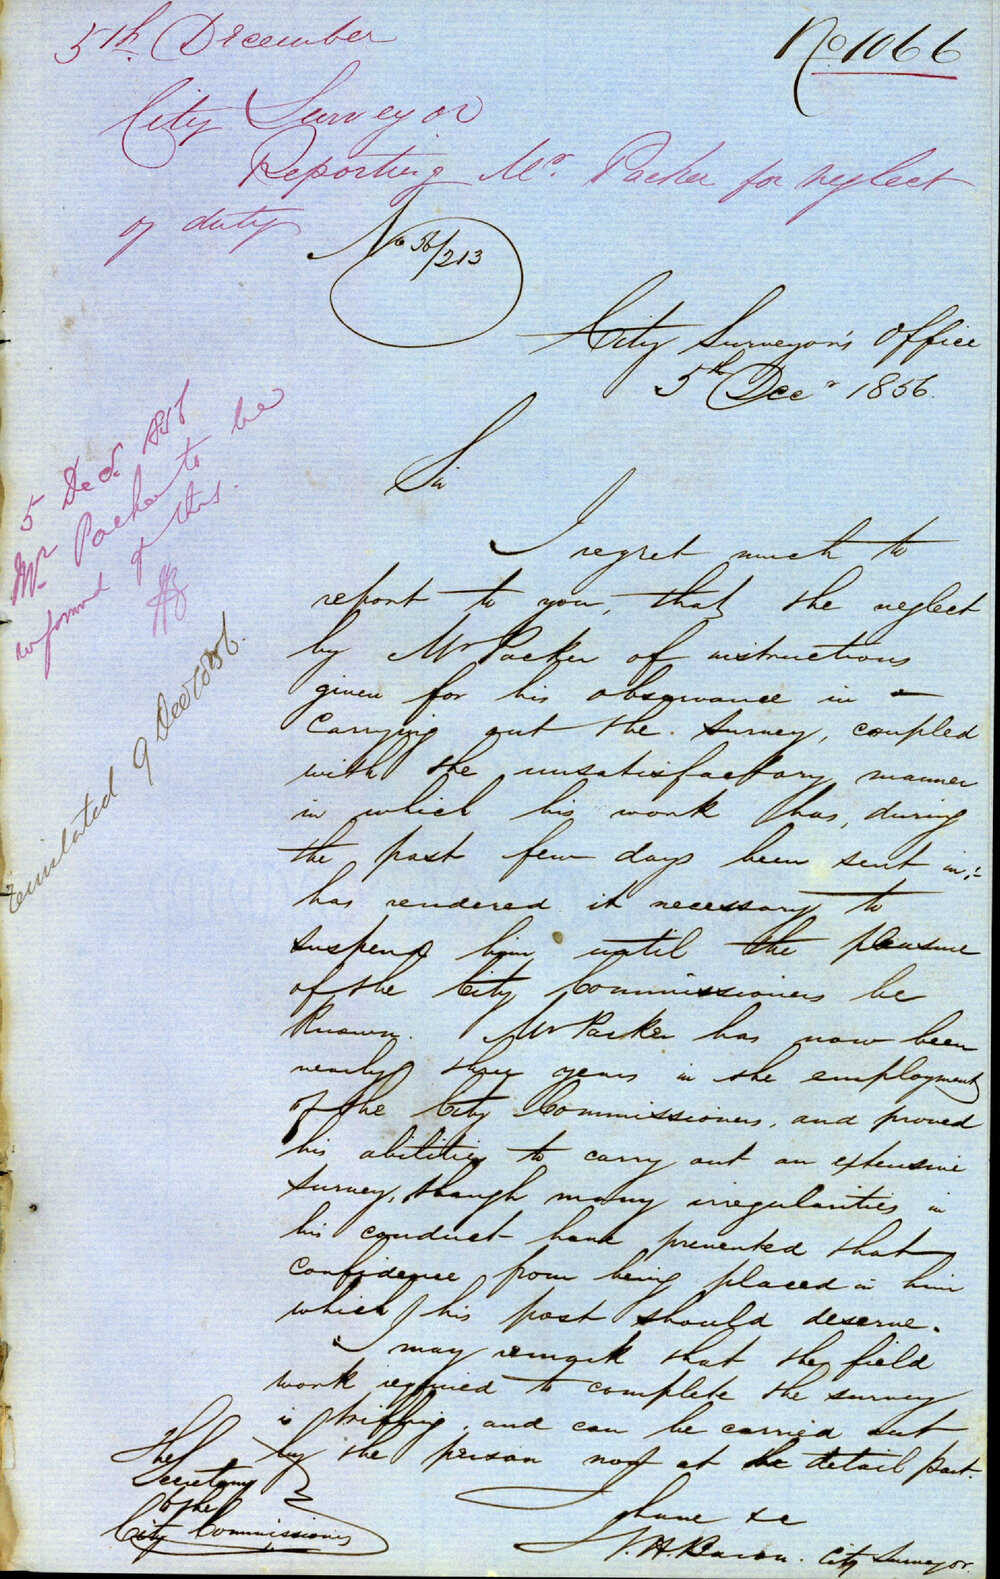 5th December
No 1066
City Surveyor
Reporting Mr. Packer for neglect
of duty
No 56/213
City Surveyor's Office
5th Decr 1856.
5 Dec. 1856
Mr Packer to be
informed of this.
9 Dec 1856.
Sir
I regret much to
report to you, that the neglect
by Mr Packer of instructions
given for his observance in
carrying out the survey, coupled
with the unsatisfactory manner
in which his work has, during
the past few days been sent in,
has rendered it necessary to
suspend him until the pleasure
of the City Commissioners be
known. Mr Packer has now been
nearly three years in the employment
of the City Commissioners, and proved
his abilities to carry out an extensive
survey, though many irregularities in
his conduct have prevented that
confidence from being placed in him
which his post should deserve.
I may remark that the field
work required to complete the survey
is triffling, and can be carried out
by the person now at the detail part.
I have &c
City Surveyor.
The
Secretary
to the
City Commissioners